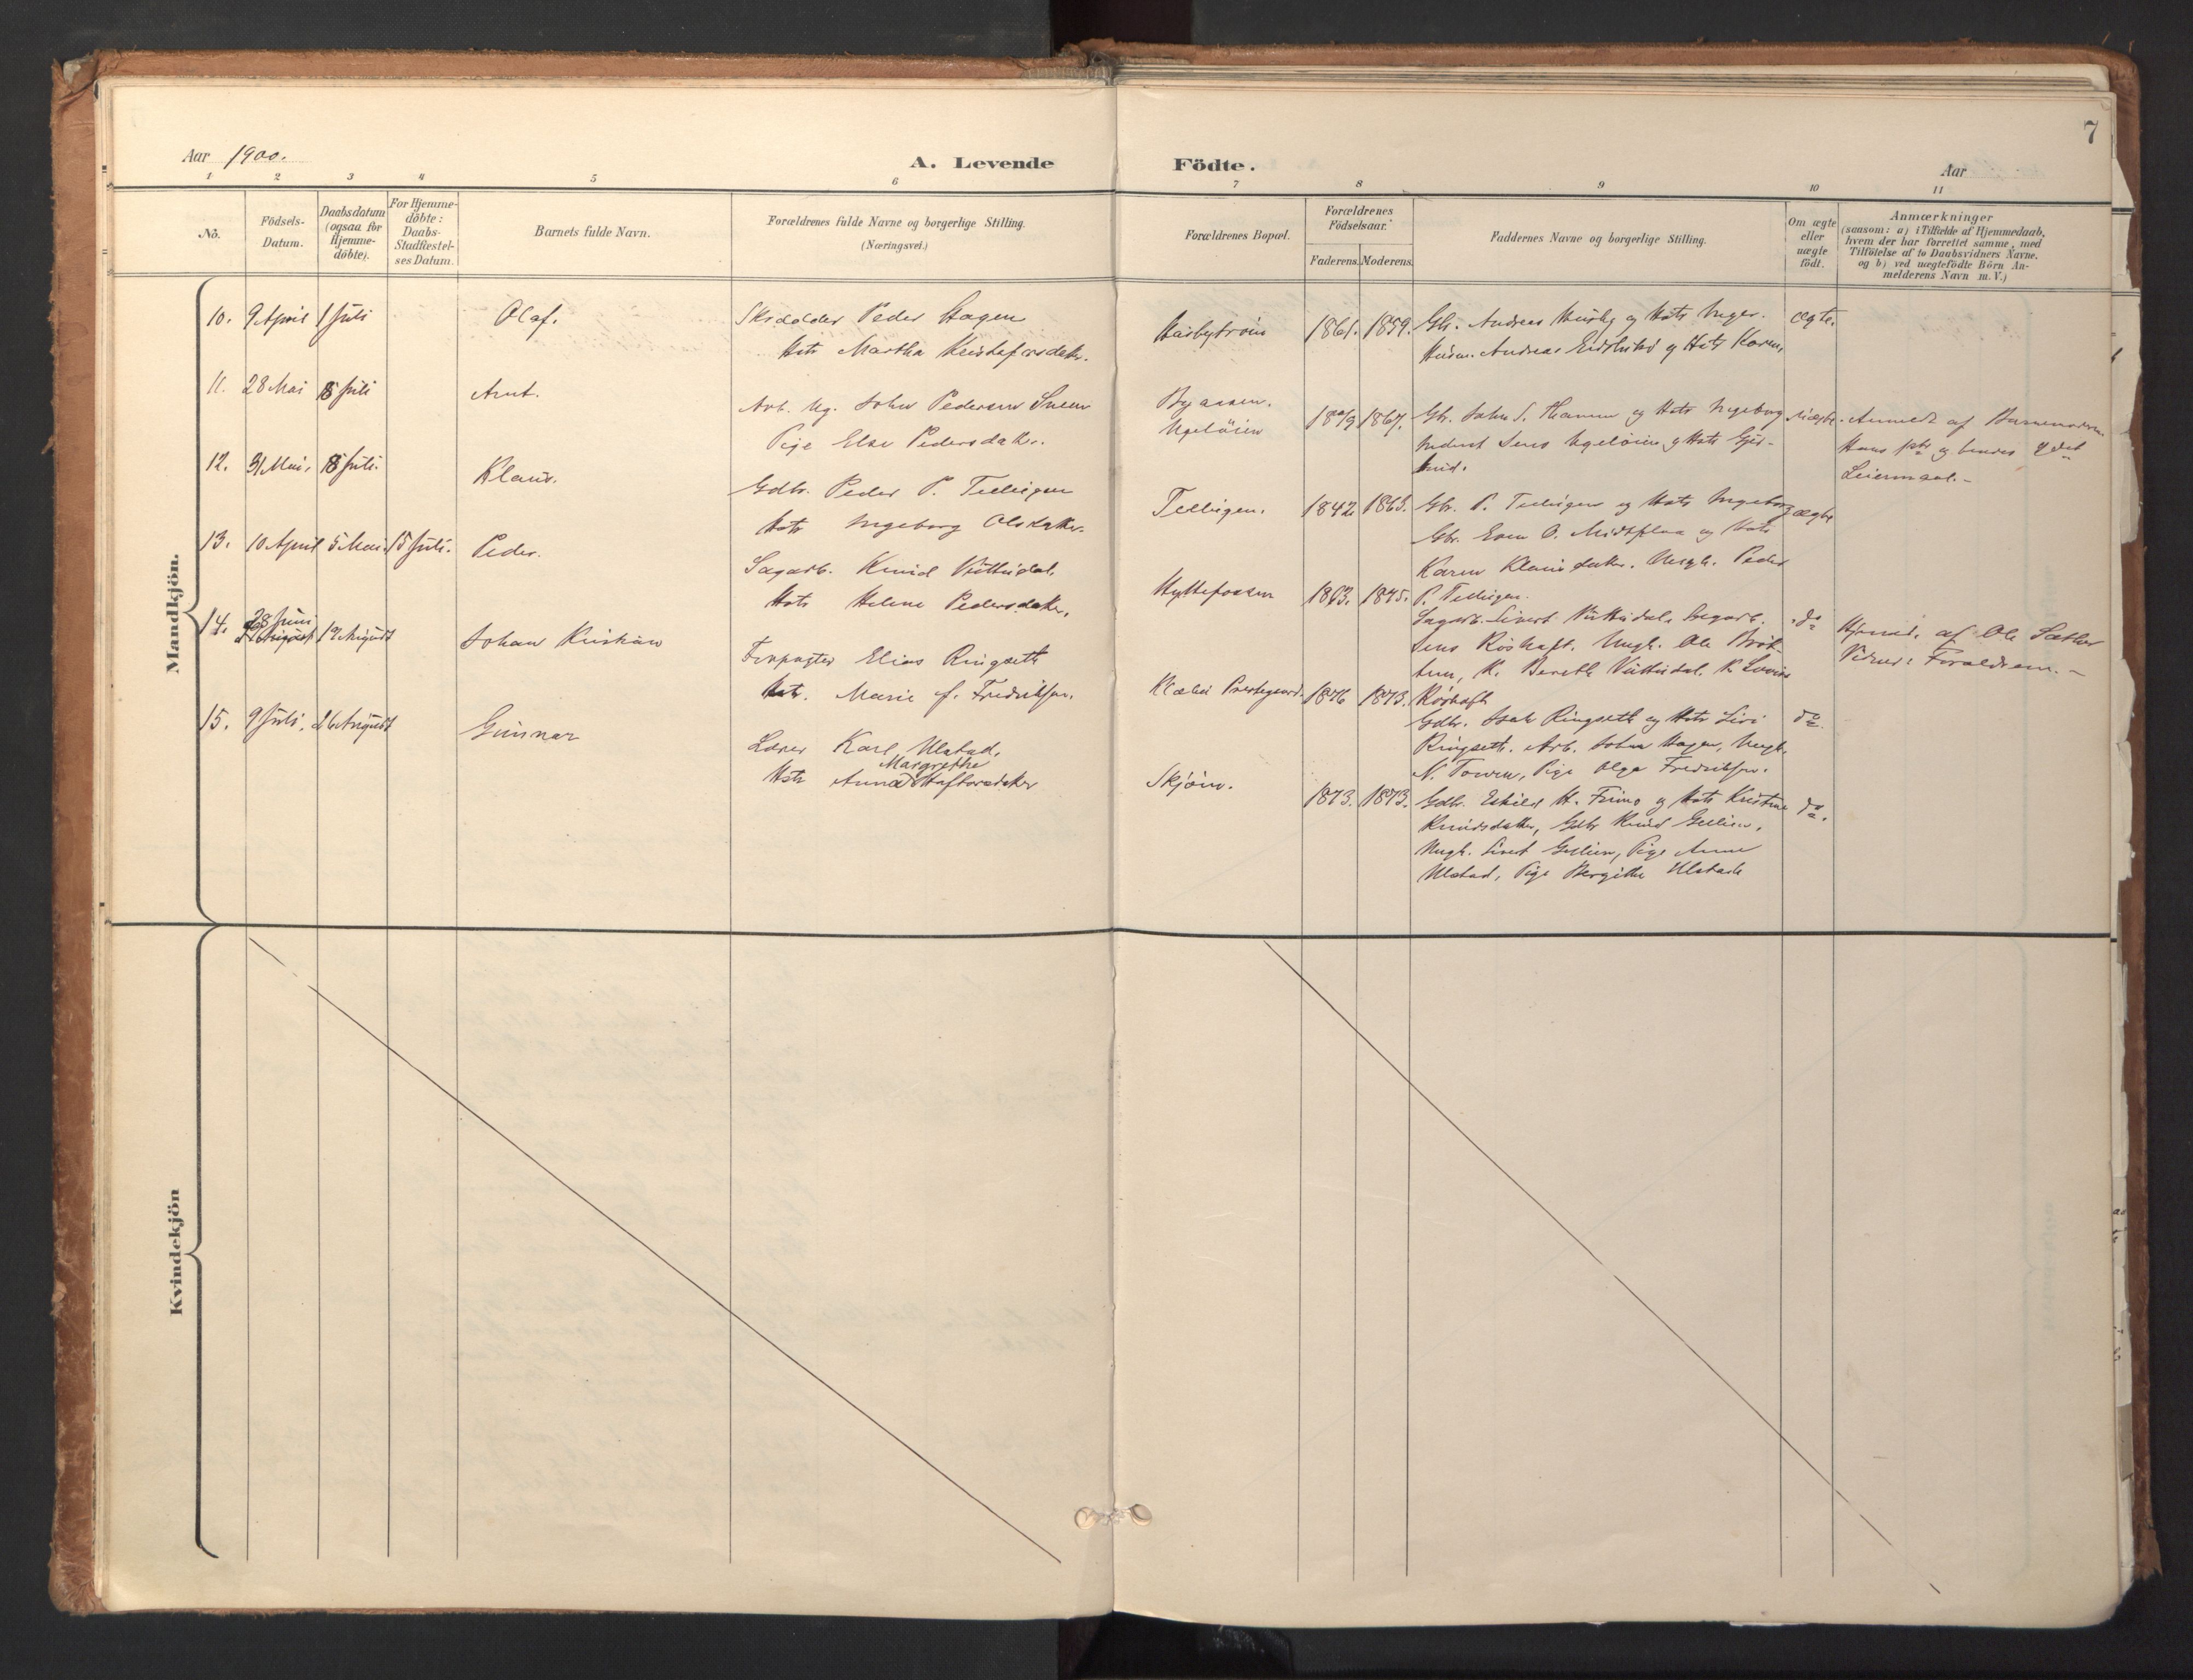 7
Aar 1900.
A. Levende Födte.
Aar
1 2 3 4 5 6 7 8 9 10 11
Nô.
Födsels-Datum.
Daabsdatum (ogsaa for Hjemme-döbte).
For Hjemme-döbte: Daabs-Stadfæstel-ses Datum.
Barnets fulde Navn.
Forældrenes fulde Navne og borgerlige Stilling.
(Næringsvei.)
Forældrenes Bopæl.
Forældrenes Födselsaar.
Faderens. Moderens.
Faddernes Navne og borgerlige Stilling.
Om ægte eller uægte födt.
Anmærkninger
(saasom: a) i Tilfælde af Hjemmedaab,
hvem der har forrettet samme, med
Tilföielse af to Daabsvidners Navne.
og b) ved uægtefödte Börn An-
melderens Navn m. V.)
Mandkjön.
10. 9 April 1 Juli Olaf.
Peder Hagen
Hst Martha
1861. 1859.
Gbr. Andreas Husby og Hstr Inger.
Husm. Andreas og Hstr Karen,
ægte.
11. 28 Mai 8 Juli Arnt.
Arb. Ug. John Pedersen
Pige Else Pedersdatter.
Byaasen.
Ugelöien
1867.
Gbr. John og Hstr Ingeborg
Jens Ugelöien og Hstr
uægte.
Anmeldt af Barnemoderen
Leiermaal.-
12. 31 Mai, 8 Juli. Klaus.
Gdbr. Peder P. Tellugen
Hstr Ingeborg Olsdatter.
Tellugen. 1842 1863.
Gbr. P. Tellugen og Hstr Ingeborg
Gbr. Even O. og Hstr
Karen Klausdatter. Ungk. Peder
P. Tellugen.
ægte
13. 10 April 5 Mai. 15 Juli. Peder.
Sagarb. Knud
Hstr Helene Pedersdatter.
Hyttefossen 1863. 1875.
Sagarb. Sivert
Jens Röshaft. Ungk. Ole
P. Bereth P. Lovise
Röshaft
do
Hjemmed. af Ole Sæther
Vidner: Forældrene.-
14. 28 Juni 19 August Johan Kristian
Forpagter Elias Ringseth
Hstr. Marie f. Fredriksen.
Klæbu Prestegaard. 1876 1873.
Gdbr. Isak Ringseth og Hstr Livi
Ringseth. Arb. Johan Hagen, Ungk.
N. Pige Olga Fredriksen.
do.
15. 9 Juli. 26 August Gunnar
Lærer Karl Ulstad,
Hstr Anna Margrethe
Skjöin.
1873. 1873.
Gdbr. Eskild H. Frimo og Hstr Kristine
Knudsdatter, Gdbr Knud Gellien,
Ungk. Sivert Gellien, Pige Anne
Ulstad, Pige Bergithe Ulstad
do.
Kvindekjön